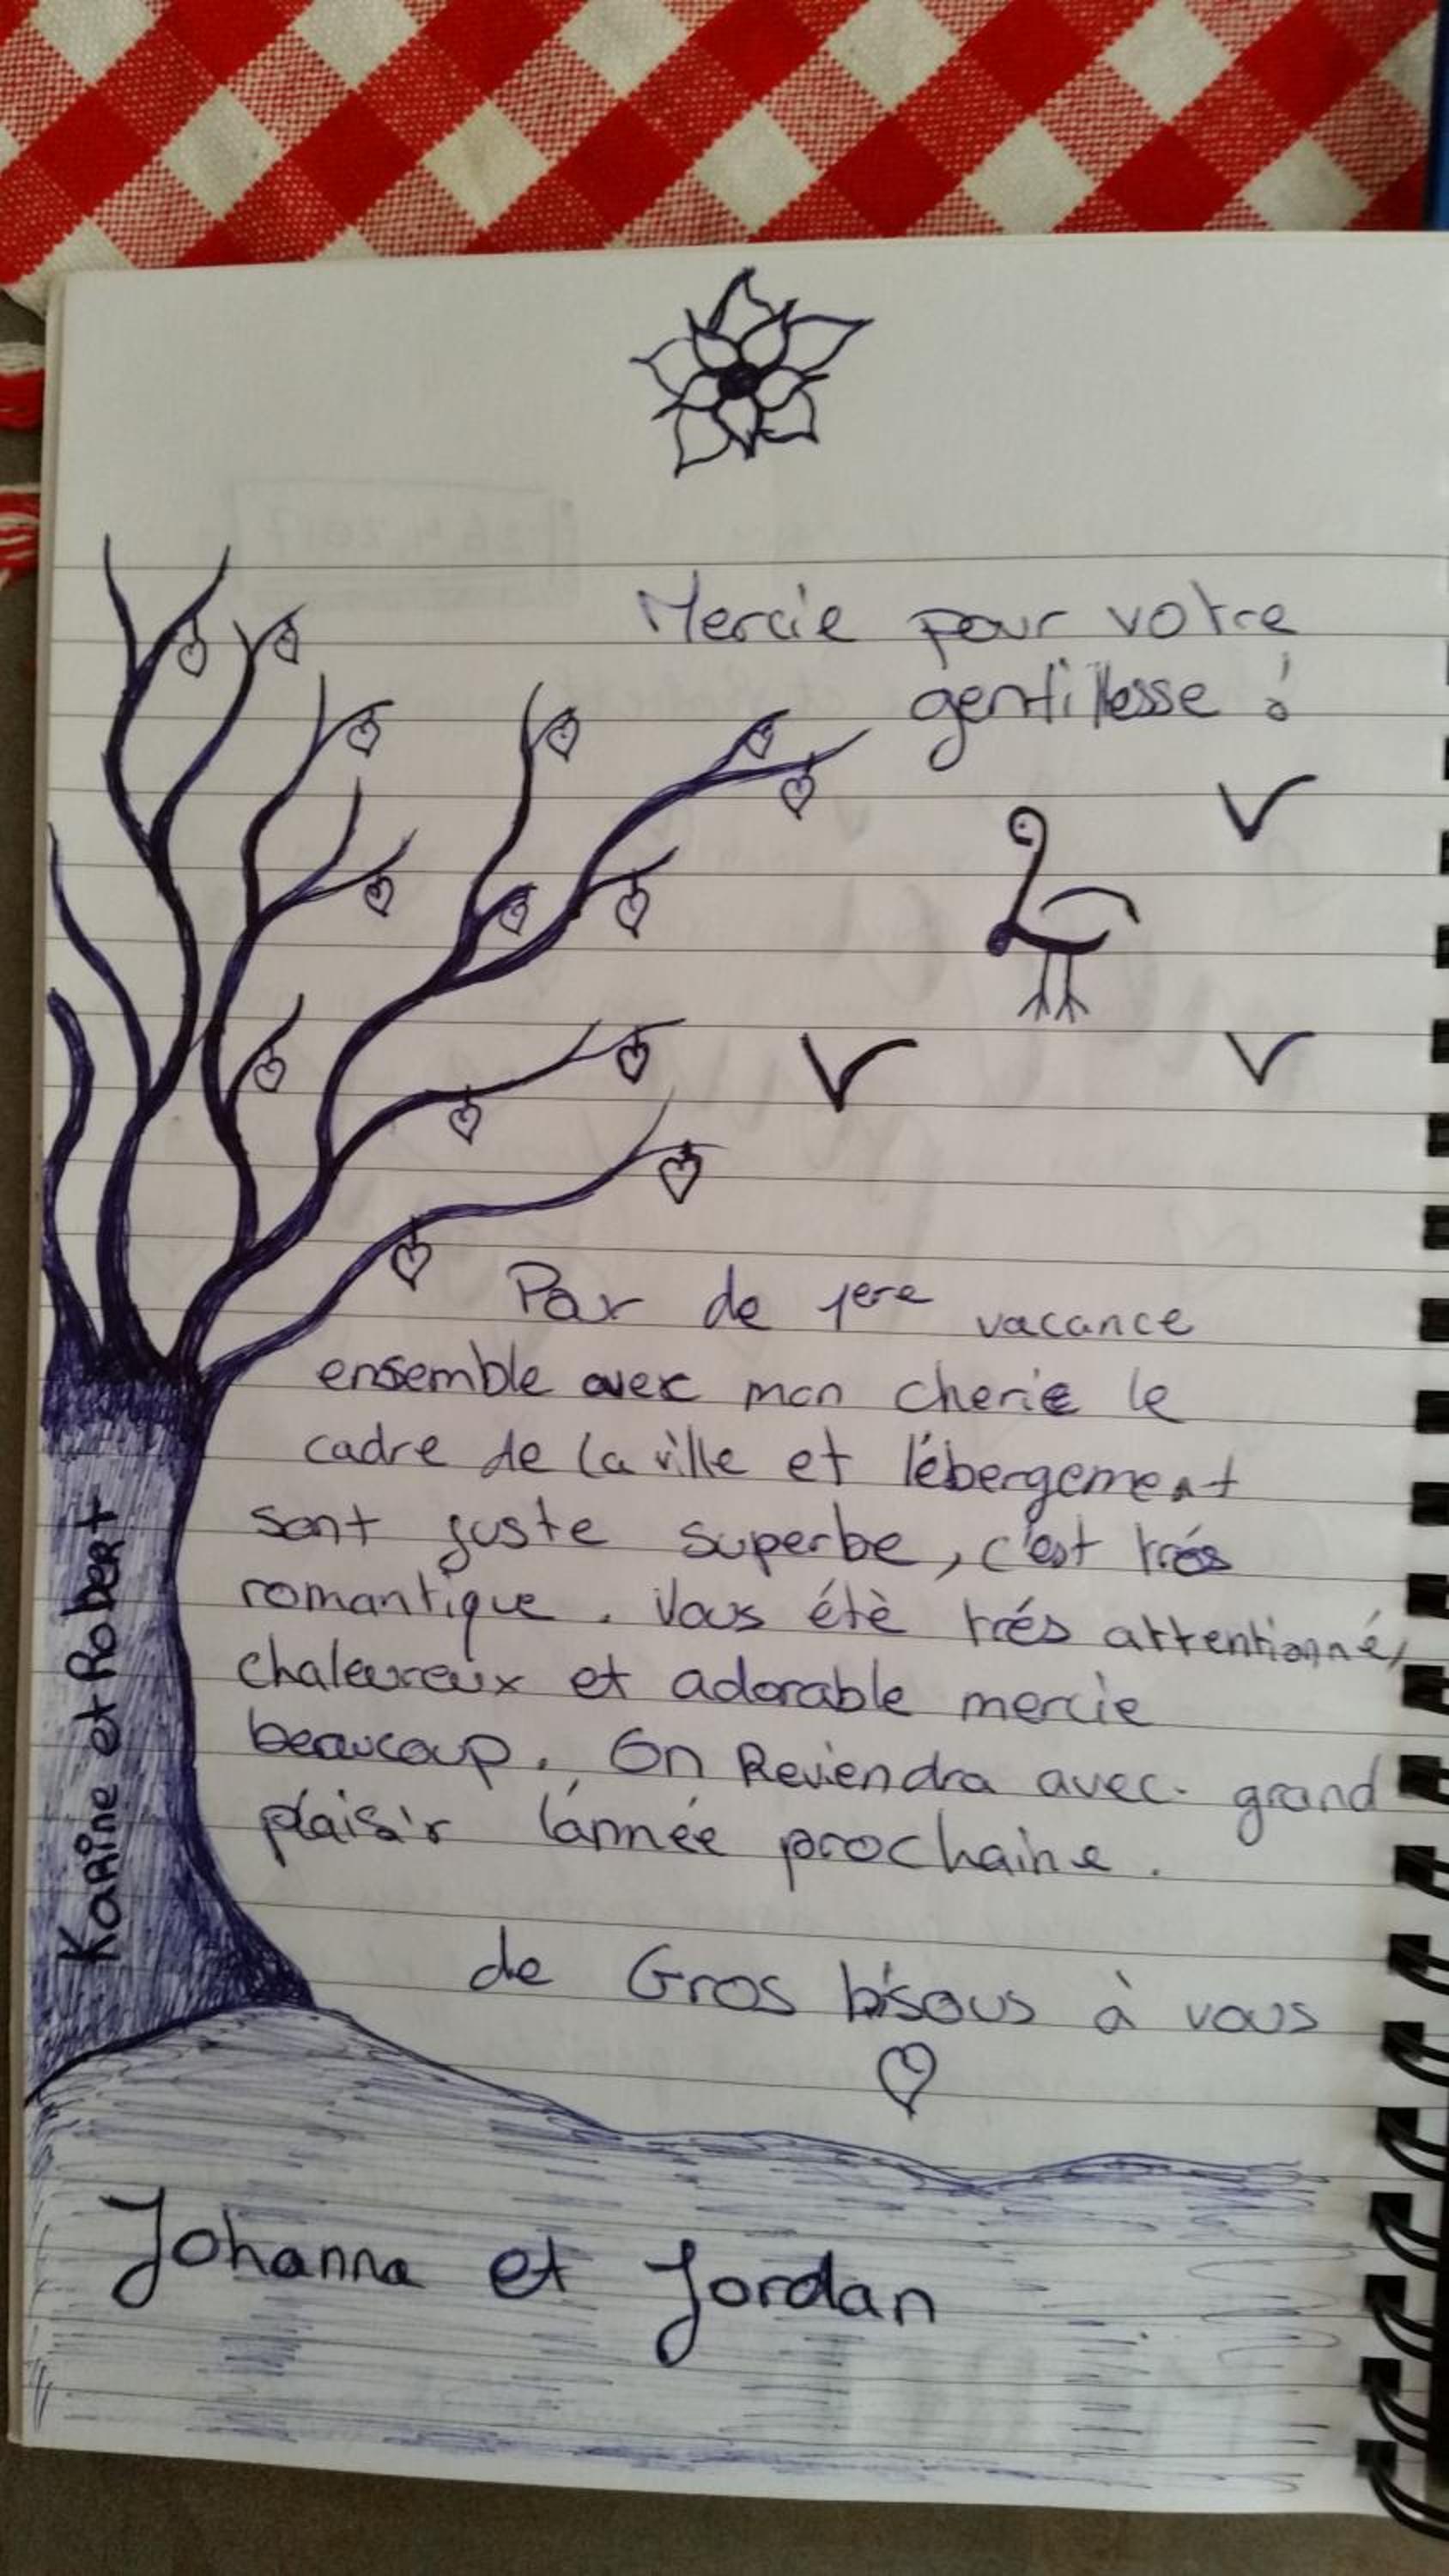 Mercie pour votre
gentillesse !
Par de 1ere vacance
ensemble avec mon cherie le
cadre de la ville et lébergement
sont juste superbe, c'est trés
romantique. Vous étè trés attentionné,
chaleureux et adorable mercie
beaucoup. On Reviendra avec grand
plaisir l'année prochaine.
de Gros bisous à vous
Karine et Robert
Johanna et Jordan